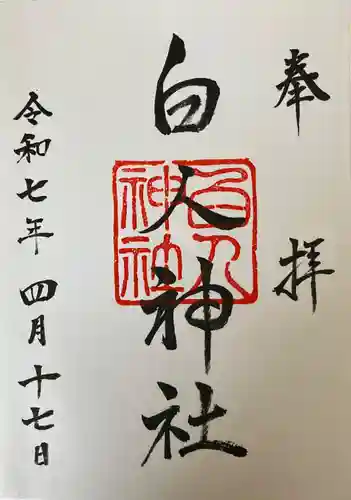 奉拝
白人神社
白人神社
令和七年 四月十七日